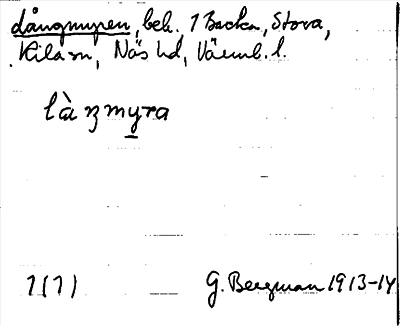 Långmyren, bek. 1 Backa, Stora,
Kila sn, Näs hd, Värml. l.
làŋmyra
1(1) G. Bergman 1913-14